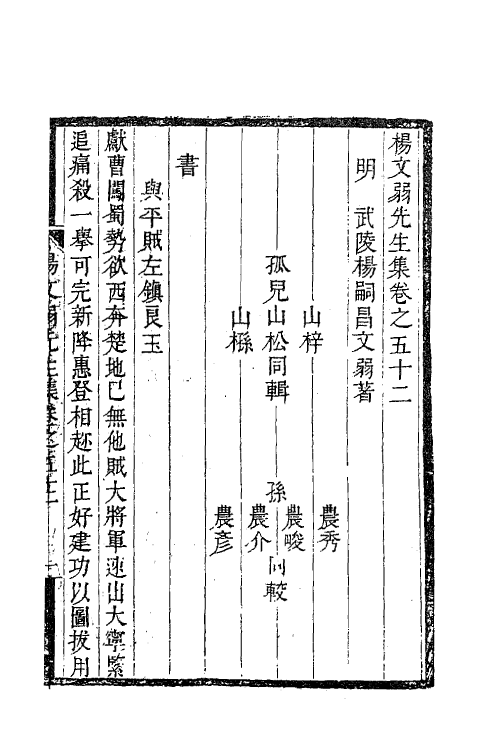 楊文弱先生集卷之五十二
明　武陵楊嗣昌文弱著
山梓
孤兒山松同輯
山槂
農秀
農畯
孫　同較
農介
農彥
書
與平賊左鎮良玉
獻曹闖蜀勢欲西奔楚地已無他賊大將軍速出大寧緊
追痛殺一擧可完新降惠登相趂此正好建功以圖拔用
楊文弱先生集卷之五十二